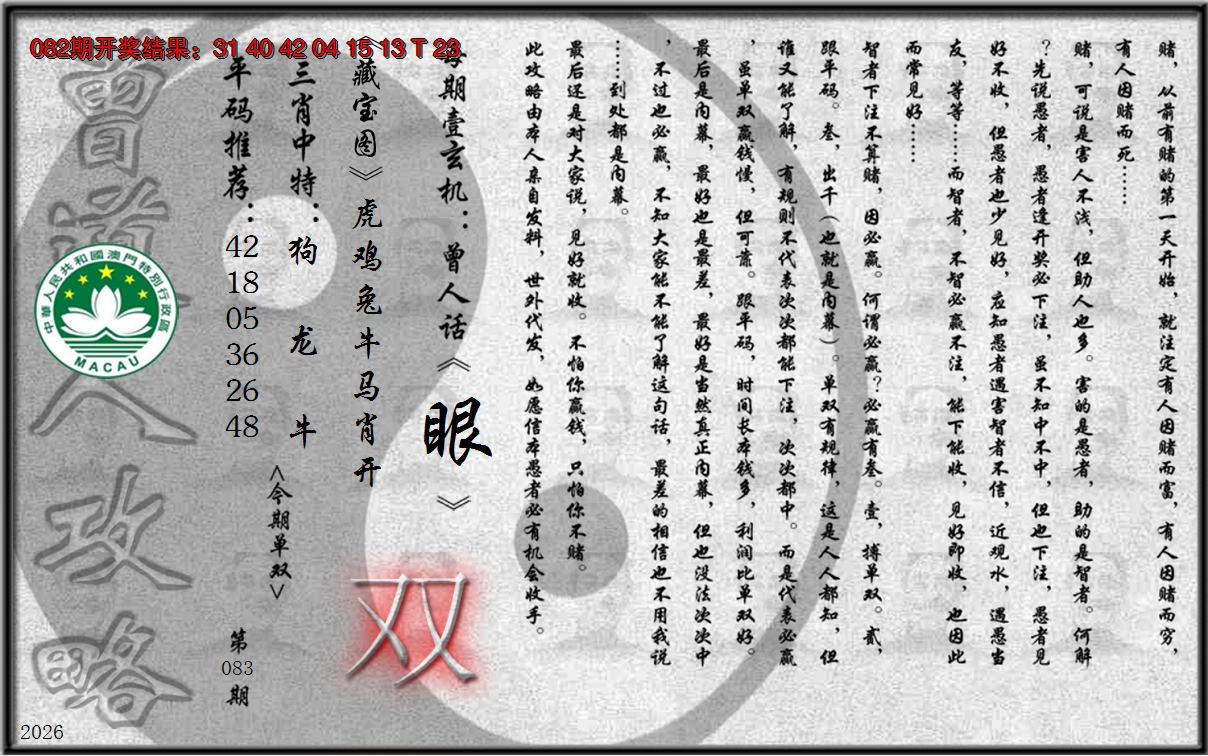 082期开奖结果：31 40 42 04 15 13 T 23
赌，从前有赌的第一天开始，就注定有人因赌而富，有人因赌而穷，
有人因赌而死……
赌，可说是害人不浅，但助人也多。害的是愚者，助的是智者。何解
？先说愚者，愚者逢开奖必下注，虽不知中不中，但也下注，愚者见
好不收，但愚者也少见好，应知愚者遇害智者不信，近观水，遇愚当
友，等等……而智者，不智必赢不注，能下能收，见好即收，也因此
而常见好……
智者下注不算赌，因必赢。何谓必赢？必赢有叁。壹，搏单双。贰，
跟平码。叁，出千（也就是内幕）。单双有规律，这是人人都知，但
谁又能了解，有规则不代表次次都能下注，次次都中。而是代表必赢
，虽单双赢钱慢，但可靠。跟平码，时间长本钱多，利润比单双好。
最后是内幕，最好也是最差，最好是当然真正内幕，但也没法次次中
，不过也必赢，不知大家能不能了解这句话，最差的相信也不用我说
……到处都是内幕。
最后还是对大家说，见好就收。不怕你赢钱，只怕你不赌。
此攻略由本人亲自发料，世外代发，如愿信本愚者必有机会收手。
每期壹玄机：曾人话《眼》
《藏宝图》虎鸡兔牛马肖开
双
三肖中特：狗 龙 牛
<今期单双>
平码推荐：42 18 05 36 26 48
第083期
曾道人攻略
中華人民共和國澳門特別行政區
MACAU
2026